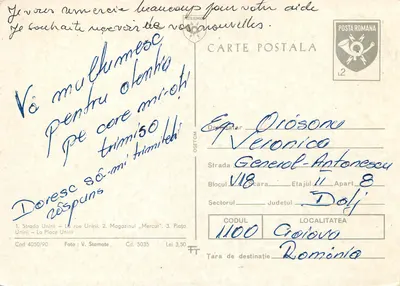 Je vous remercie beaucoup pour votre aide
Je souhaite recevoir de vos nouvelles.
CARTE POSTALA
POSTA ROMANA
L2
Vă mulțumesc
pentru atenția
pe care mi-ați
trimiso
Doresc să-mi trimiteți
răspuns
Exp. Orosanu
Veronica
Strada General-Antonescu
Blocul V18 Scara Etajul II Apart. 8
Sectorul Judetul Dolj
CODUL LOCALITATEA
1100 Craiova
România
Tara de destinatie
1. Strada Unirii - La rue Unirii; 2. Magazinul „Mercur"; 3. Piața
Unirii - La Place Unirii
Cod 4000/90 Foto: V. Stamate Cd. 5035 Lei 2,50